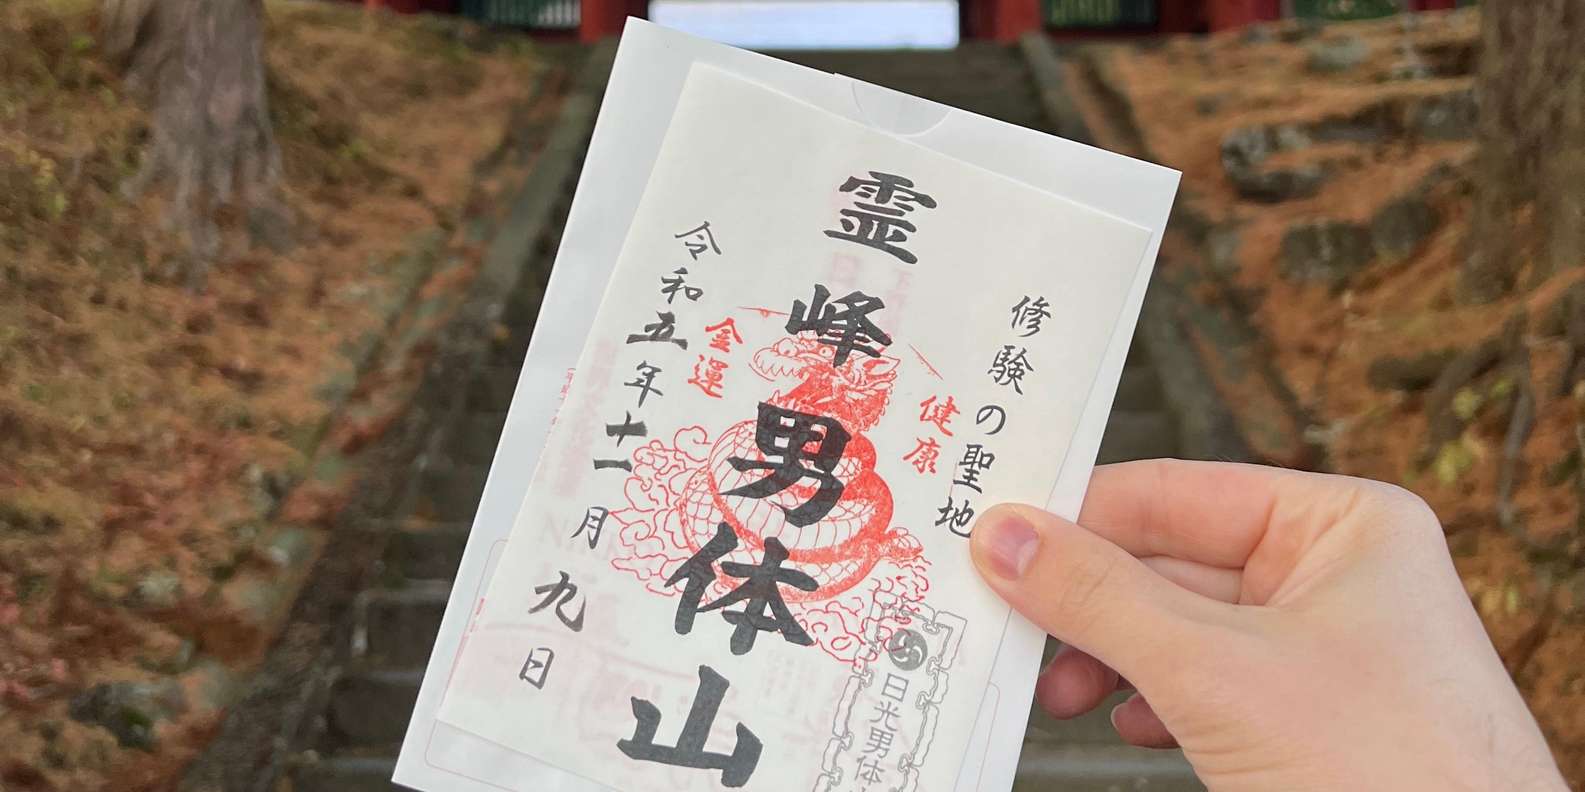 修験の聖地
健康
霊峰男体山
金運
令和五年十一月九日
日光男体